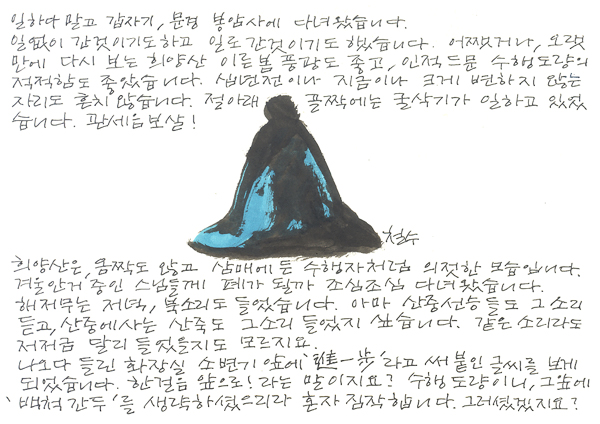 일하다 말고 갑자기, 문경 봉암사에 다녀왔습니다.
일없이 간것이기도하고 일로간것이기도 했습니다. 어쨌거나, 오랫
만에 다시 보는 희양산 이른봄 풍광도 좋고, 인적드문 수행도량의
적적함도 좋았습니다. 십년전이나 지금이나 크게 변하지 않는
자리도 흔치 않습니다. 절아래 골짝에는 굴삭기가 일하고 있었
습니다. 관세음보살!
철수
희양산은, 꼼짝도 않고 삼매에 든 수행자처럼 의젓한 모습입니다.
겨울안거,중인 스님들께 폐가 될까 조심조심 다녀왔습니다.
해저무는 저녁, 북소리도 들었습니다. 아마 산중선승들도 그소리
듣고,산중에사는 산죽도 그소리 들었지 싶습니다. 같은 소리라도
저저금 달리 들었을지도 모르지요.
나오다 들린 화장실 소변기 앞에 '進一步'라고 써붙인 글씨를 보게
되었습니다. 한걸음 앞으로! 라는 말이지요? 수행도량이니, 그앞에
'백척간두'를 생략하셨으리라 혼자 짐작합니다. 그러셨겠지요?